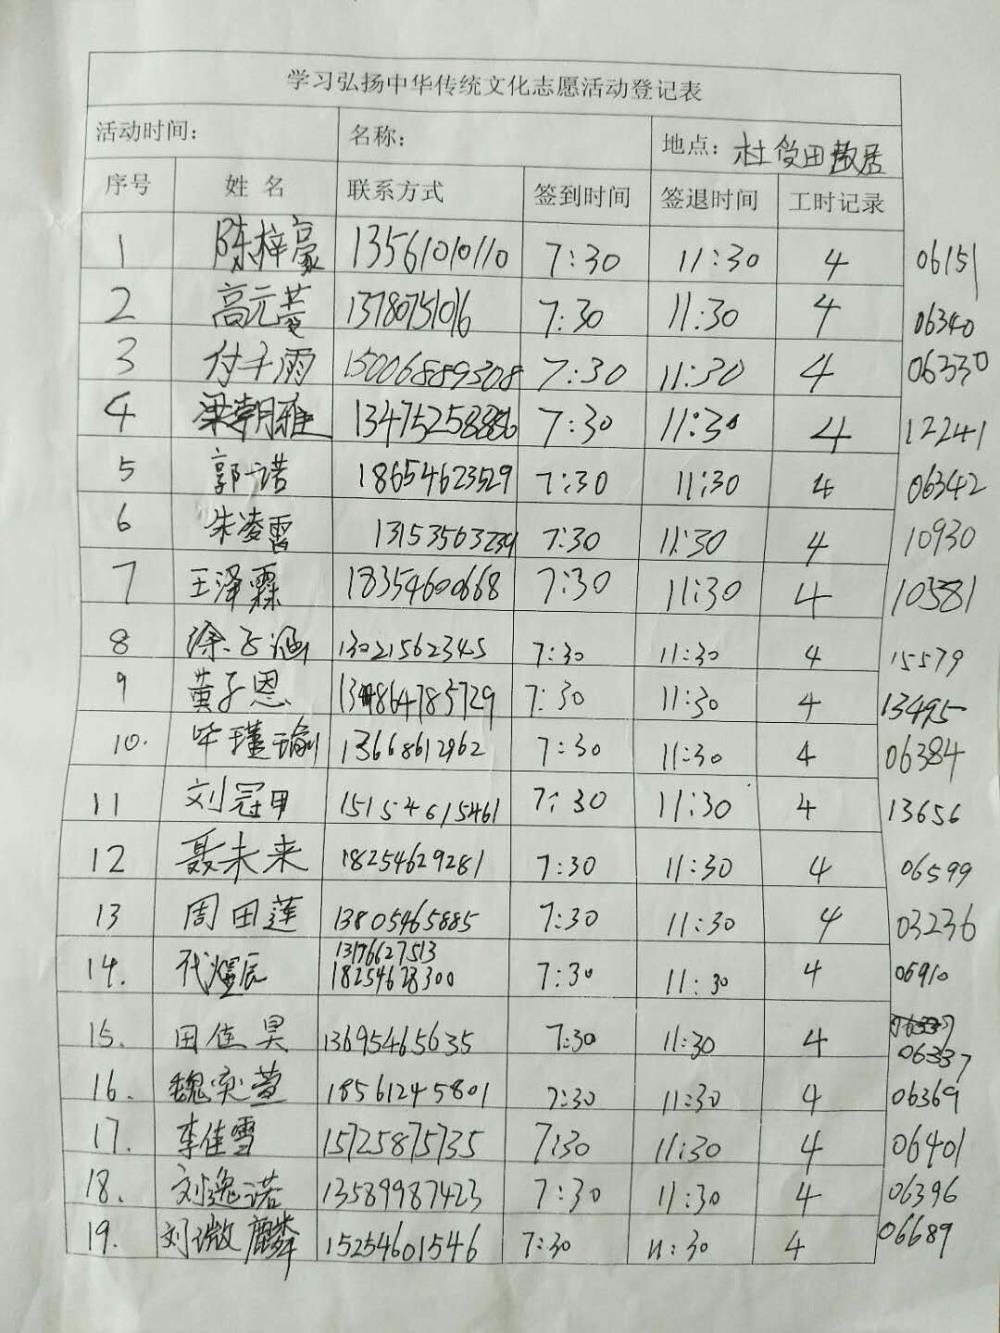 学习弘扬中华传统文化志愿活动登记表
活动时间: 名称: 地点: 杜受田故居
序号 姓名 联系方式 签到时间 签退时间 工时记录
1 陈梓豪 13561010110 7:30 11:30 4 06151
2 高元菱 13780751016 7:30 11:30 4 06340
3 付千雨 15006889308 7:30 11:30 4 06330
4 梁朝雅 7:30 11:30 4 12241
5 郭一诺 18654623529 7:30 11:30 4 06342
6 朱凌雪 13153563239 7:30 11:30 4 10930
7 王泽霖 18354600668 7:30 11:30 4 10581
8 徐子涵 13021562345 7:30 11:30 4 15579
9 黄子恩 7:30 11:30 4 13495
10. 毕瑾瑜 13668612962 7:30 11:30 4 06384
11 刘冠甲 15154615461 7:30 11:30 4 13656
12 聂未来 18254629281 7:30 11:30 4 06599
13 周田莲 13805465885 7:30 11:30 4 03236
13176627513
14. 代煜辰 18254628300 7:30 11:30 4 06910
15. 田佳昊 13695465635 7:30 11:30 4
06337
16. 魏奕萱 18561245801 7:30 11:30 4 06369
17. 李佳雪 15725875735 7:30 11:30 4 06401
18. 刘逸诺 13589987423 7:30 11:30 4 06396
19. 刘微麟 15254601546 7:30 11:30 4 06689